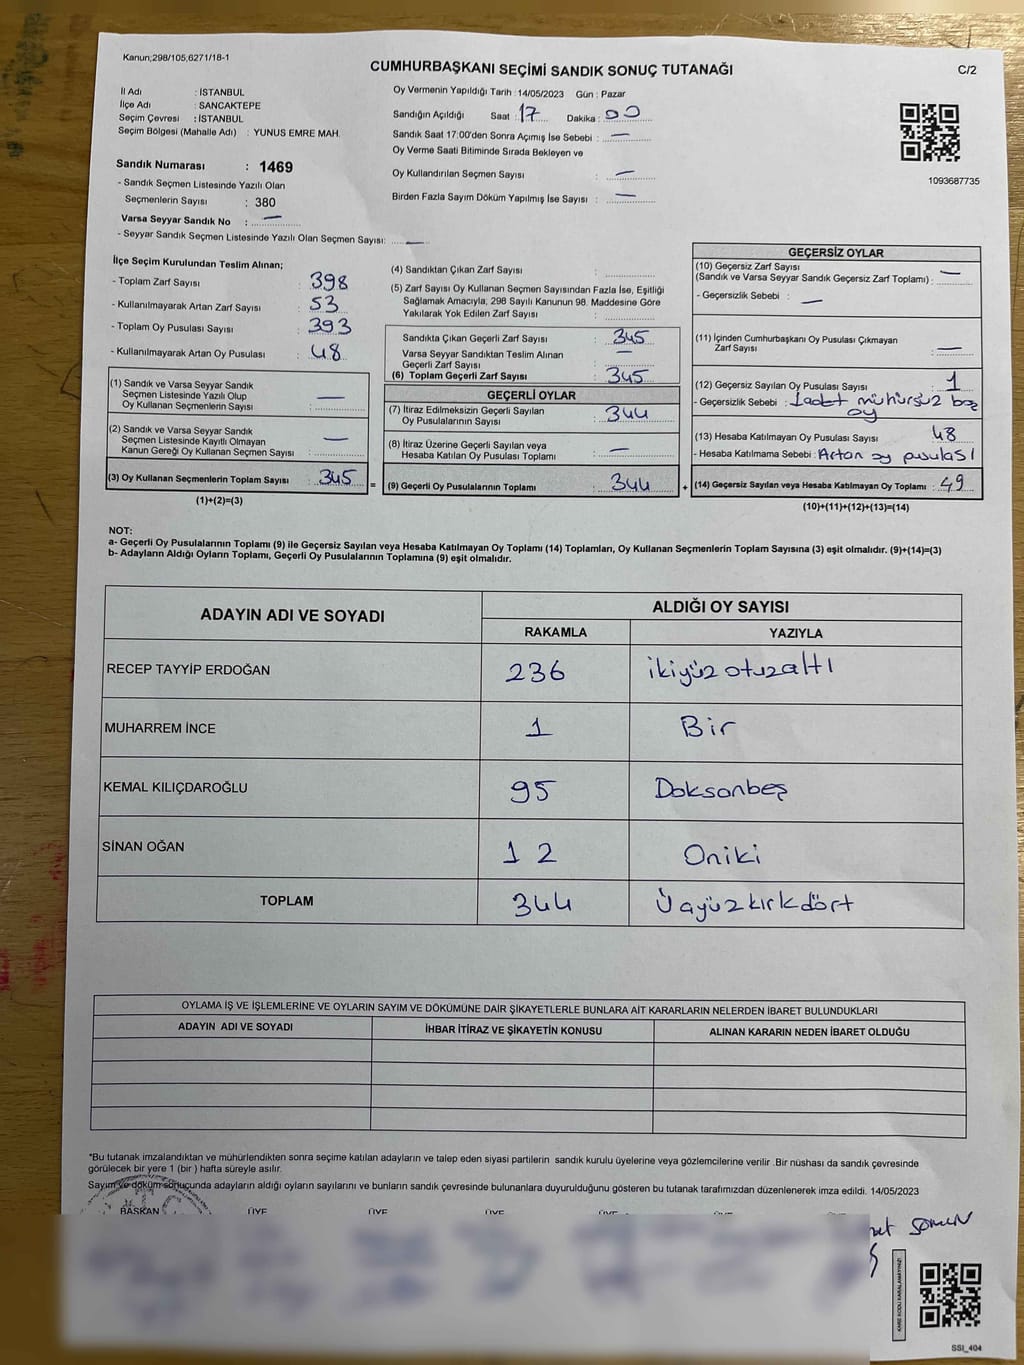 Kanun;298/105,6271/18-1
CUMHURBAŞKANI SEÇİMİ SANDIK SONUÇ TUTANAĞI
C/2
İl Adı : İSTANBUL
İlçe Adı : SANCAKTEPE
Seçim Çevresi : İSTANBUL
Seçim Bölgesi (Mahalle Adı) : YUNUS EMRE MAH.
Sandık Numarası : 1469
- Sandık Seçmen Listesinde Yazılı Olan
Seçmenlerin Sayısı : 380
Varsa Seyyar Sandık No : —
- Seyyar Sandık Seçmen Listesinde Yazılı Olan Seçmen Sayısı: —
Oy Vermenin Yapıldığı Tarih : 14/05/2023 Gün : Pazar
Sandığın Açıldığı Saat : 17 Dakika : 00
Sandık Saat 17:00'den Sonra Açımış İse Sebebi : —
Oy Verme Saati Bitiminde Sırada Bekleyen ve
Oy Kullandırılan Seçmen Sayısı : —
Birden Fazla Sayım Döküm Yapılmış İse Sayısı : —
1093687735
İlçe Seçim Kurulundan Teslim Alınan;
- Toplam Zarf Sayısı : 398
- Kullanılmayarak Artan Zarf Sayısı : 53
- Toplam Oy Pusulası Sayısı : 393
- Kullanılmayarak Artan Oy Pusulası : 48
(1) Sandık ve Varsa Seyyar Sandık
Seçmen Listesinde Yazılı Olup
Oy Kullanan Seçmenlerin Sayısı : —
(2) Sandık ve Varsa Seyyar Sandık
Seçmen Listesinde Kayıtlı Olmayan
Kanun Gereği Oy Kullanan Seçmen Sayısı : —
(3) Oy Kullanan Seçmenlerin Toplam Sayısı : 345 =
(1)+(2)=(3)
(4) Sandıktan Çıkan Zarf Sayısı :
(5) Zarf Sayısı Oy Kullanan Seçmen Sayısından Fazla İse, Eşitliği
Sağlamak Amacıyla, 298 Sayılı Kanunun 98. Maddesine Göre
Yakılarak Yok Edilen Zarf Sayısı :
Sandıkta Çıkan Geçerli Zarf Sayısı : 345
Varsa Seyyar Sandıktan Teslim Alınan
Geçerli Zarf Sayısı : —
(6) Toplam Geçerli Zarf Sayısı : 345
GEÇERLİ OYLAR
(7) İtiraz Edilmeksizin Geçerli Sayılan
Oy Pusulalarının Sayısı : 344
(8) İtiraz Üzerine Geçerli Sayılan veya
Hesaba Katılan Oy Pusulası Toplamı : —
(9) Geçerli Oy Pusulalarının Toplamı : 344 +
GEÇERSİZ OYLAR
(10) Geçersiz Zarf Sayısı
(Sandık ve Varsa Seyyar Sandık Geçersiz Zarf Toplamı) : —
- Geçersizlik Sebebi : —
(11) İçinden Cumhurbaşkanı Oy Pusulası Çıkmayan
Zarf Sayısı : —
(12) Geçersiz Sayılan Oy Pusulası Sayısı : 1
- Geçersizlik Sebebi : 1 adet mühürsüz boş
oy
(13) Hesaba Katılmayan Oy Pusulası Sayısı : 48
- Hesaba Katılmama Sebebi : Artan oy pusulası
(14) Geçersiz Sayılan veya Hesaba Katılmayan Oy Toplamı : 49
(10)+(11)+(12)+(13)=(14)
NOT:
a- Geçerli Oy Pusulalarının Toplamı (9) ile Geçersiz Sayılan veya Hesaba Katılmayan Oy Toplamı (14) Toplamları, Oy Kullanan Seçmenlerin Toplam Sayısına (3) eşit olmalıdır. (9)+(14)=(3)
b- Adayların Aldığı Oyların Toplamı, Geçerli Oy Pusulalarının Toplamına (9) eşit olmalıdır.
ADAYIN ADI VE SOYADI ALDIĞI OY SAYISI
RAKAMLA YAZIYLA
RECEP TAYYİP ERDOĞAN 236 ikiyüzotuzaltı
MUHARREM İNCE 1 Bir
KEMAL KILIÇDAROĞLU 95 Doksanbeş
SİNAN OĞAN 12 Oniki
TOPLAM 344 Üçyüzkırkdört
OYLAMA İŞ VE İŞLEMLERİNE VE OYLARIN SAYIM VE DÖKÜMÜNE DAİR ŞİKAYETLERLE BUNLARA AİT KARARLARIN NELERDEN İBARET BULUNDUKLARI
ADAYIN ADI VE SOYADI İHBAR İTİRAZ VE ŞİKAYETİN KONUSU ALINAN KARARIN NEDEN İBARET OLDUĞU
*Bu tutanak imzalandıktan ve mühürlendikten sonra seçime katılan adayların ve talep eden siyasi partilerin sandık kurulu üyelerine veya gözlemcilerine verilir .Bir nüshası da sandık çevresinde
görülecek bir yere 1 (bir ) hafta süreyle asılır.
Sayım ve döküm sonuçunda adayların aldığı oyların sayılarını ve bunların sandık çevresinde bulunanlara duyurulduğunu gösteren bu tutanak tarafımızdan düzenlenerek imza edildi. 14/05/2023
BAŞKAN ÜYE ÜYE ÜYE ÜYE ÜYE
KARE KODU KARALAMAYINIZ!
SSI_404